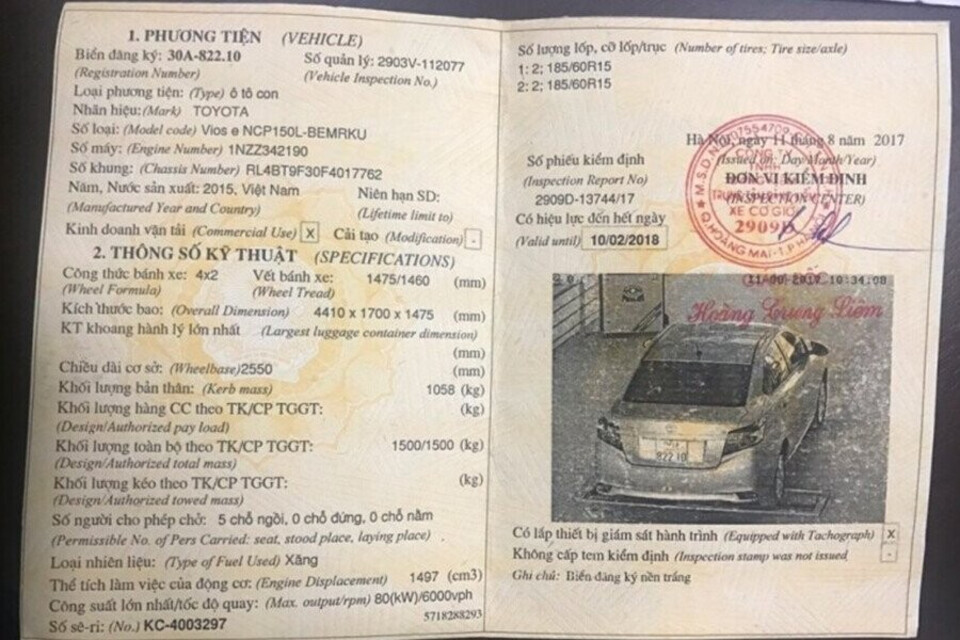 1. PHƯƠNG TIỆN (VEHICLE)
Biển đăng ký: 30A-822.10 Số quản lý: 2903V-112077
(Registration Number) (Vehicle Inspection No.)
Loại phương tiện: (Type) ô tô con
Nhãn hiệu:(Mark) TOYOTA
Số loại: (Model code) Vios e NCP150L-BEMRKU
Số máy: (Engine Number) 1NZZ342190
Số khung: (Chassis Number) RL4BT9F30F4017762
Năm, Nước sản xuất: 2015, Việt Nam Niên hạn SD:
(Manufactured Year and Country) (Lifetime limit to)
Kinh doanh vận tải (Commercial Use) X Cải tạo (Modification) -
2. THÔNG SỐ KỸ THUẬT (SPECIFICATIONS)
Công thức bánh xe: 4x2 Vết bánh xe: 1475/1460 (mm)
(Wheel Formula) (Wheel Tread)
Kích thước bao: (Overall Dimension) 4410 x 1700 x 1475 (mm)
KT khoang hành lý lớn nhất (Largest luggage container dimension)
(mm)
Chiều dài cơ sở: (Wheelbase)2550 (mm)
Khối lượng bản thân: (Kerb mass) 1058 (kg)
Khối lượng hàng CC theo TK/CP TGGT: (kg)
(Design/Authorized pay load)
Khối lượng toàn bộ theo TK/CP TGGT: 1500/1500 (kg)
(Design/Authorized total mass)
Khối lượng kéo theo TK/CP TGGT: (kg)
(Design/Authorized towed mass)
Số người cho phép chở: 5 chỗ ngồi, 0 chỗ đứng, 0 chỗ nằm
(Permissible No. of Pers Carried: seat, stood place, laying place)
Loại nhiên liệu: (Type of Fuel Used) Xăng
Thể tích làm việc của động cơ: (Engine Displacement) 1497 (cm3)
Công suất lớn nhất/tốc độ quay: (Max. output/rpm) 80(kW)/6000vph
Số sê-ri: (No.) KC-4003297 5718288293
Số lượng lốp, cỡ lốp/trục (Number of tires; Tire size/axle)
1: 2; 185/60R15
2: 2; 185/60R15
Hà Nội, ngày 11 tháng 8 năm 2017
(Issued on: Day/Month/Year)
Số phiếu kiểm định ĐƠN VỊ KIỂM ĐỊNH
(Inspection Report No) (INSPECTION CENTER)
2909D-13744/17
Có hiệu lực đến hết ngày
(Valid until) 10/02/2018
CÔNG TY
TNHH
XE CƠ GIỚI
2909D
Q.HOÀNG MAI-T.P HÀ NỘI
10:34:08
Hoàng Trung Liêm
822.10
Có lắp thiết bị giám sát hành trình (Equipped with Tachograph) X
Không cấp tem kiểm định (Inspection stamp was not issued -
Ghi chú: Biển đăng ký nền trắng